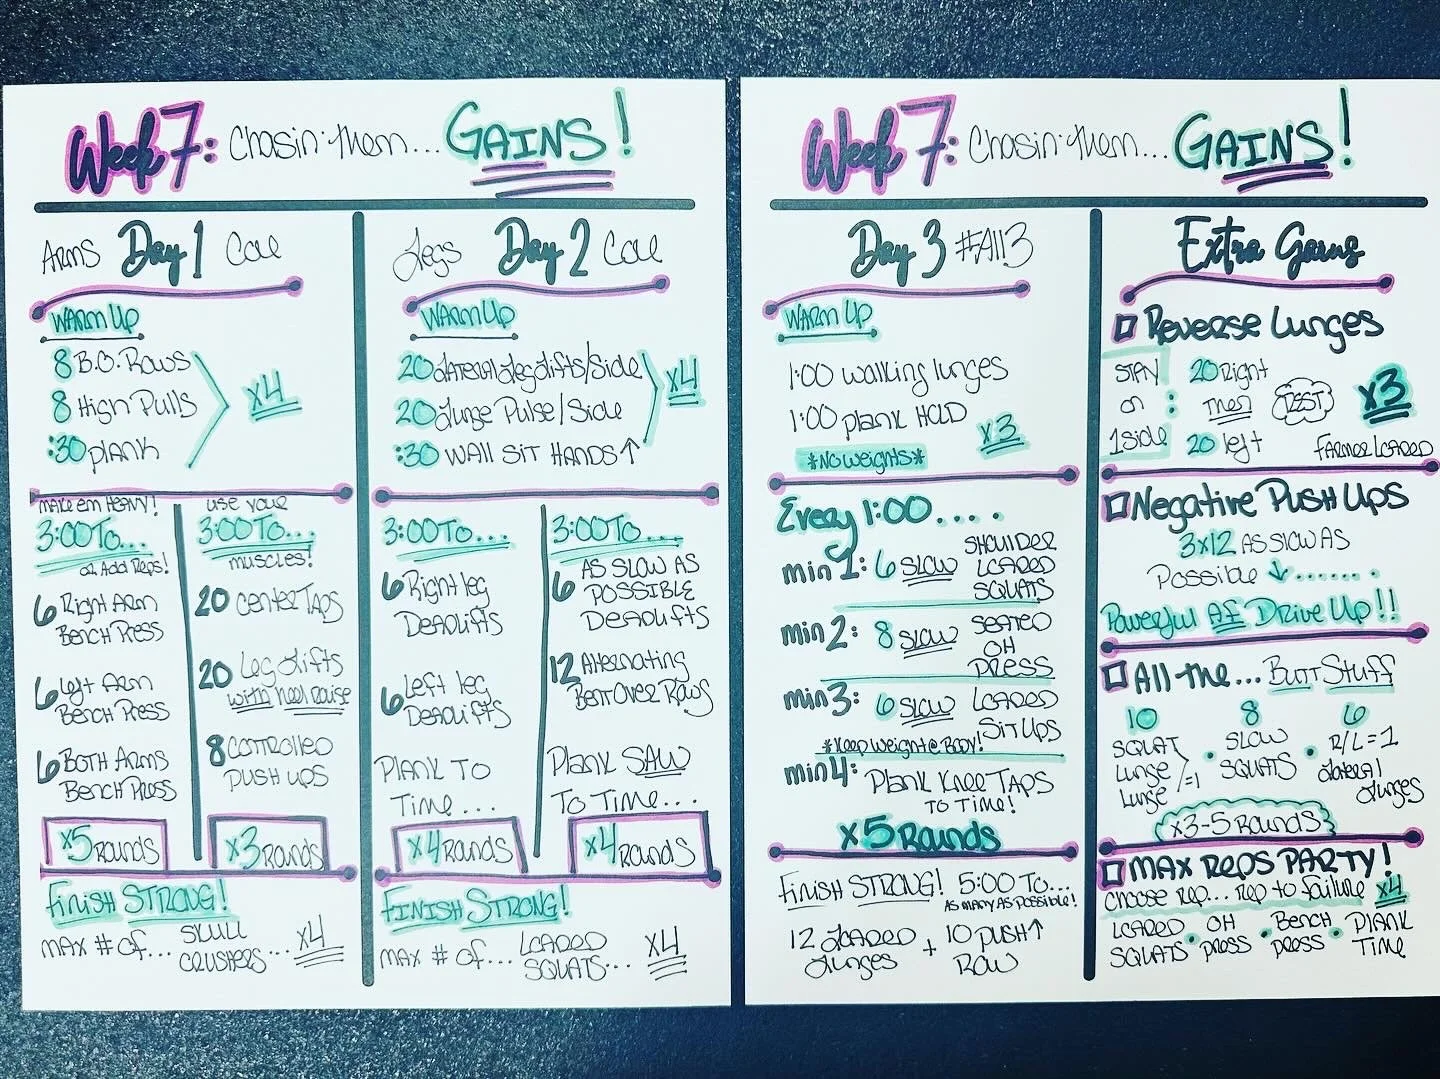 Week 7: Chasin' them... GAINS!
ARMS Day 1 Core
WARM UP
8 B.O. Rows
8 High Pulls
:30 plank
x4
make em HEAVY!
3:00 To...
or Add Reps!
6 Right Arm
Bench Press
6 Left Arm
Bench Press
6 BOTH ARMS
Bench Press
x5 Rounds
use your
3:00 To...
muscles!
20 center Taps
20 Leg Lifts
with heel raise
8 CONTROLLED
PUSH UPS
x3 Rounds
Finish STRONG!
MAX # of... SKULL
CRUSHERS... x4
Legs Day 2 Core
WARM UP
20 Lateral Leg Lifts/Side
20 Lunge Pulse/Side
:30 WALL SIT HANDS ↑
x4
3:00 To...
6 Right leg
Deadlifts
6 Left leg
Deadlifts
PLANK TO
Time...
x4 Rounds
3:00 To...
6 AS SLOW AS
POSSIBLE
Deadlifts
12 Alternating
Bent Over Rows
Plank SAW
To Time...
x4 Rounds
FINISH STRONG!
MAX # of... LOADED
SQUATS... x4
Week 7: Chasin' them... GAINS!
Day 3 #All3
WARM UP
1:00 walking lunges
1:00 plank HOLD
*No weights*
x3
Every 1:00....
min 1: 6 SLOW SHOULDER
LOADED
SQUATS
min 2: 8 SLOW SEATED
OH
PRESS
min 3: 6 SLOW LOADED
SIT UPS
*Keep weight @ Body!
min 4: Plank Knee Taps
TO TIME!
x5 Rounds
Finish STRONG! 5:00 To...
AS MANY AS POSSIBLE!
12 LOADED
Lunges + 10 PUSH ↑
ROW
Extra Gains
Reverse Lunges
STAY
on
1 side :
20 Right
Then
20 left
REST
x3
FARMER LOADED
Negative Push Ups
3x12 AS SLOW AS
Possible ↓.......
Powerful AF Drive Up!!
All the... Butt Stuff
10
SQUAT
Lunge
Lunge /=1
• 8
SLOW
SQUATS
• 6
R/L=1
Lateral
Lunges
x3-5 Rounds
MAX REPS PARTY!
choose rep... rep to failure x4
LOADED
SQUATS • OH
PRESS • BENCH
PRESS • PLANK
TIME